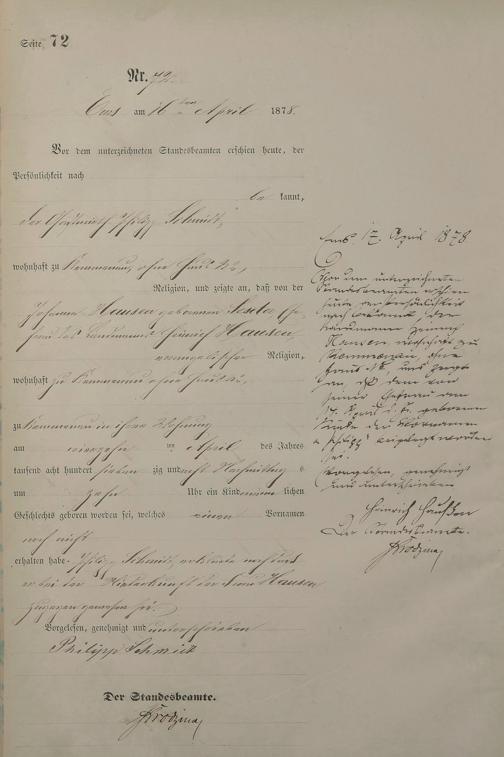 Seite 72
Nr. 72.
Ems am 16ten April 1878.
Vor dem unterzeichneten Standesbeamten erschien heute, der
Persönlichkeit nach
be kannt,
der Philipp Schmidt,
wohnhaft zu Kemmenau, ohne Haus Nr.,
Religion, und zeigte an, daß von der
Johanna Hausen geborenen
frau des Landmanns Heinrich Hausen
evangelischer Religion,
wohnhaft zu Kemmenau ohne Haus Nr.,
zu Kemmenau in ihrer Wohnung
am vierzehn ten April des Jahres
tausend acht hundert sieben zig und acht Nachmittag s
um zehn Uhr ein Kind männ lichen
Geschlechts geboren worden sei, welches einen Vornamen
noch nicht
erhalten habe. Philipp Schmidt, erklärte noch daß
er bei der Niederkunft der Frau Hausen
zugegen gewesen sei.
Vorgelesen, genehmigt und unterschrieben
Philipp Schmidt
Der Standesbeamte.
Ems, 17. April 1878
Vor dem unterzeichneten
Standesbeamten erschien
heute der Persönlichkeit
nach bekannt, der
Landmann Heinrich
Hansen, wohnhaft zu
Kemmenau, ohne
Haus Nr., und zeigte
an, daß dem von
seiner Ehefrau am
14. April d. J. geborenen
Kinde die Vornamen
" Philipp" beigelegt worden
sei.
Vorgelesen, genehmigt
und unterschrieben
Heinrich Haußen
Der Standesbeamte.